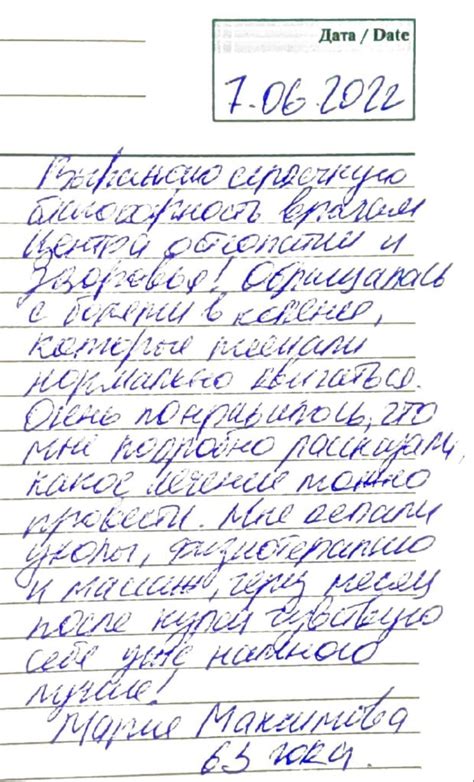 Дата / Date
7.06.2022
Выражаю сердечную
благодарность врачам
Центра остеопатии и
здоровья! Обращалась
с болями в колене,
которые мешали
нормально двигаться.
Очень понравилось, что
мне подробно рассказали,
какое лечение можно
провести. Мне делали
уколы, физиотерапию
и массаж, через месяц
после курса чувствую
себя уже намного
лучше!
Мария Максимова
63 года.